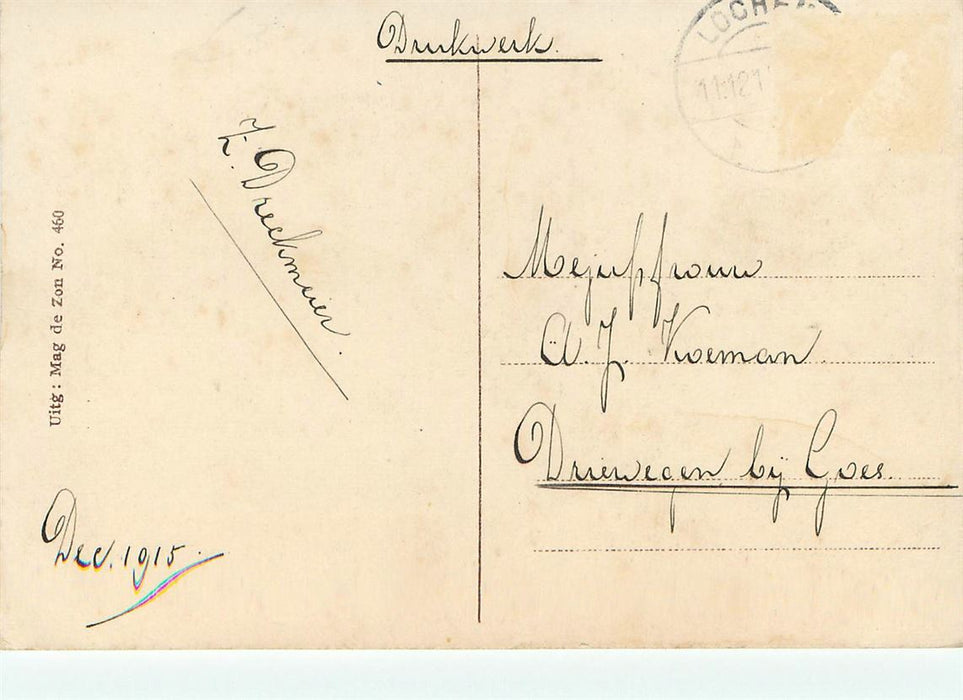 Drukwerk.
LOCHEM
11.12.1
Z. Dreekmeier.
Uitg: Mag de Zon No. 460
Mejuffrouw
A. J. Koeman
Driewegen bij Goes.
Dec. 1915.